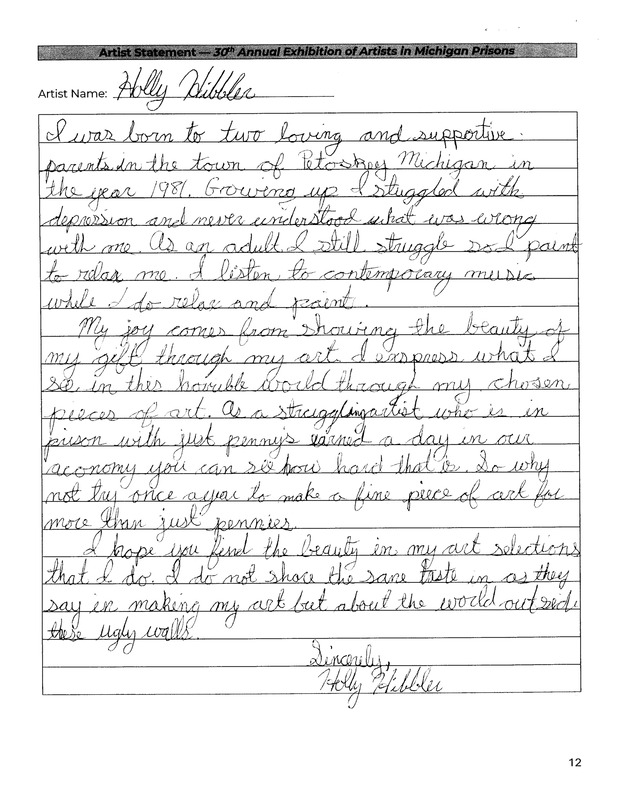 Artist Statement — 30th Annual Exhibition of Artists in Michigan Prisons
Artist Name: Holly Hibbler
I was born to two loving and supportive
parents in the town of Petoskey Michigan in
the year 1981. Growing up I stuggled with
depression and never understood what was wrong
with me. As an adult I still struggle so I paint
to relax me. I listen to contemporary music
while I do relax and paint.
My joy comes from showing the beauty of
my gift through my art. I exspress what I
see in this horruble world through my chosen
pieces of art. As a struggling artist who is in
prison with just pennys earned a day in our
aconomy you can see how hard that is. So why
not try once a year to make a fine piece of art for
more than just pennies.
I hope you find the beauty in my art selections
that I do. I do not share the sane taste in as they
say in making my art but about the world outside
these ugly walls.
Sincerely,
Holly Hibbler
12